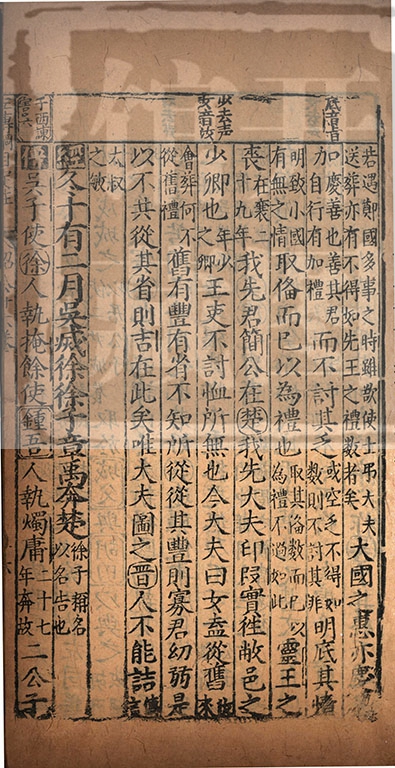 底音旨
少去声
女音汝
若遇鄭國多事之時雖欲使士弔大夫
送葬亦有不得如先王之禮數者矣
大國之惠亦慶其
加慶善也善其君
自行有加禮
而不討其乏
或空乏不得如
數則不討其非
明底其情
明致小國
有無之情
取備而已以為禮也
取其備數而已以
為禮不過如此
靈王之
喪
在襄二
十九年
我先君簡公在楚我先大夫印段實往敝邑之
少卿也
年少
之卿
王吏不討恤所無也今大夫曰女盍從舊
會葬何不
從舊禮
舊有豐有省不知所從從其豐則寡君幼弱是
以不共從其省則吉在此矣唯大夫圖之晉人不能詰
傳言
大叔
之敏
經冬十有二月吳滅徐徐子章禹奔楚
徐子稱名
以名告也
傳吳子使徐人執掩餘使鍾吾人執燭庸
二十七
年奔故
二公子